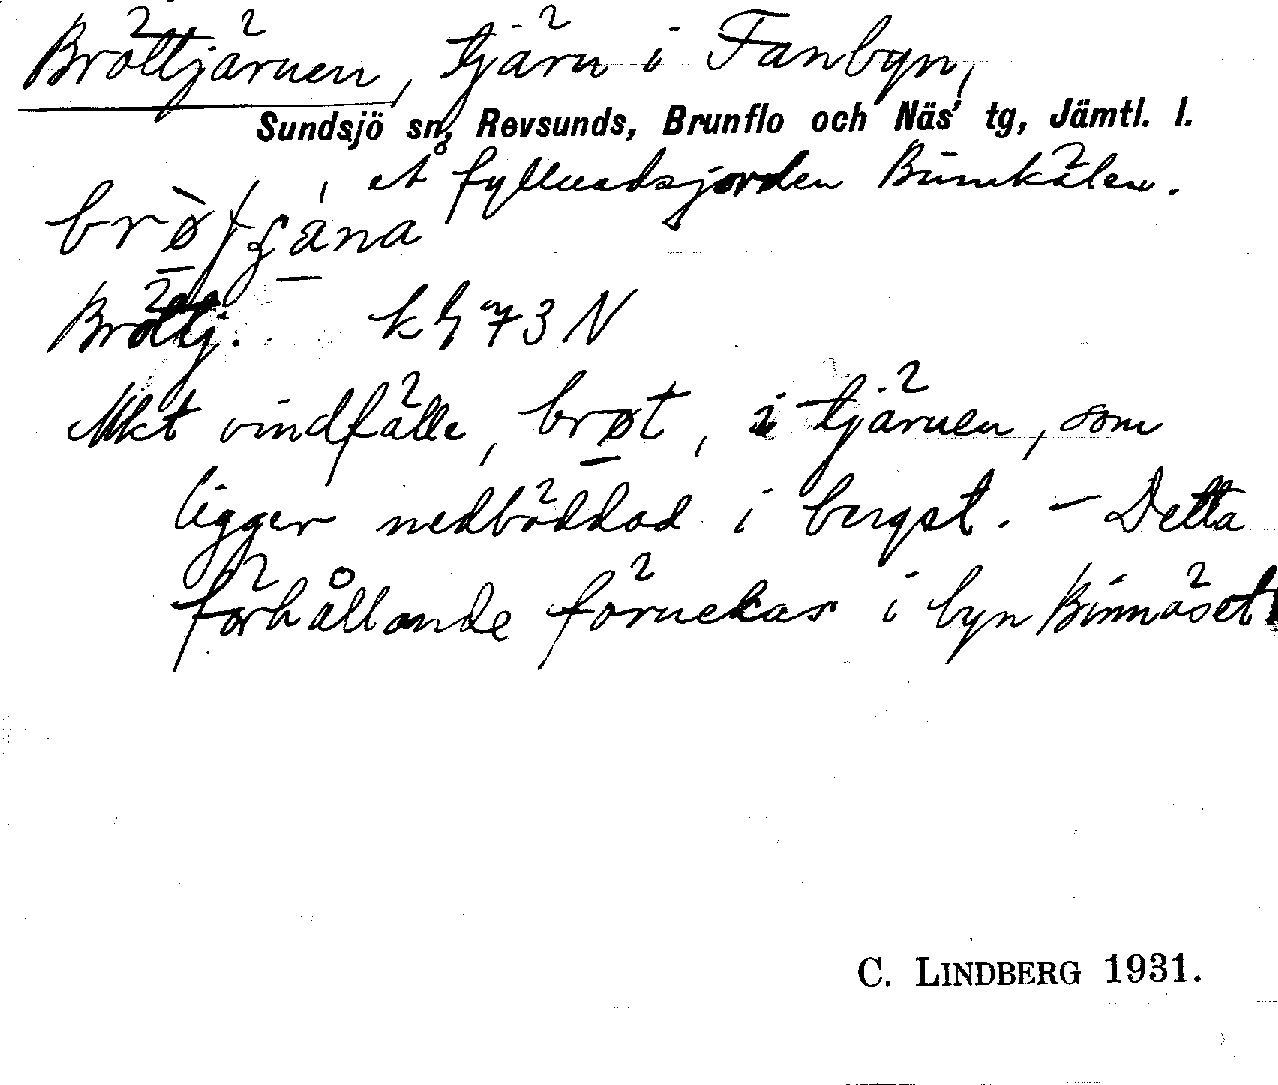 Bröttjärnen, tjärn i Fanbyn,
Sundsjö sn, Revsunds, Brunflo och Näs tg, Jämtl. l.
å fyllnadsjorden
Bröttj. k h 73 N
Mkt vindfälle, brøt, i tjärnen, som
ligger nedbäddad i bergst. – Detta
förhållande förnekas i byn Binnäset
C. LINDBERG 1931.